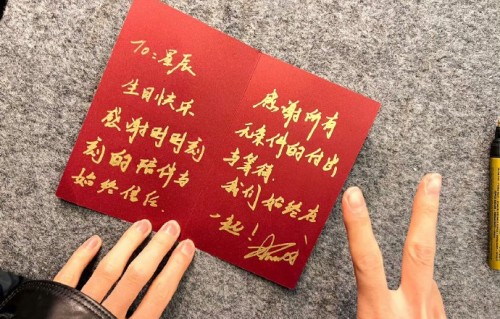 To：星辰
生日快乐
感谢时时刻
刻的陪伴与
始终信任.
感谢所有
无条件的付出
与等待.
我们始终在
一起！